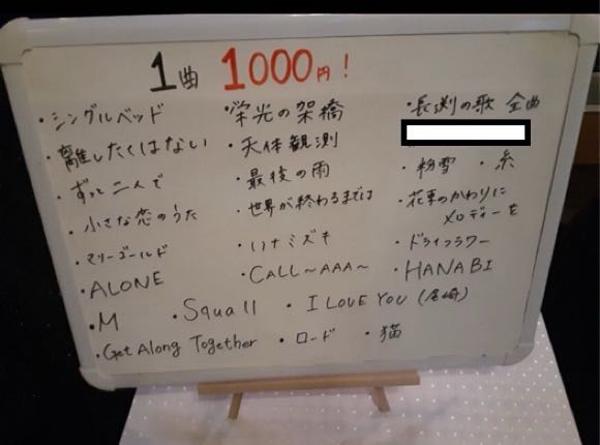 1曲 1000円!
・シングルベッド ・栄光の架橋 ・長渕の歌 全曲
・離したくはない ・天体観測
・ずっと二人で ・最後の雨 ・粉雪 ・糸
・小さな恋のうた ・世界が終わるまでは ・花束のかわりに
メロディーを
・マリーゴールド ・ハナミズキ ・ドライフラワー
・ALONE ・CALL〜AAA〜 ・HANABI
・M ・Squall ・I LOVE YOU (尾崎)
・Get Along Together ・ロード ・猫